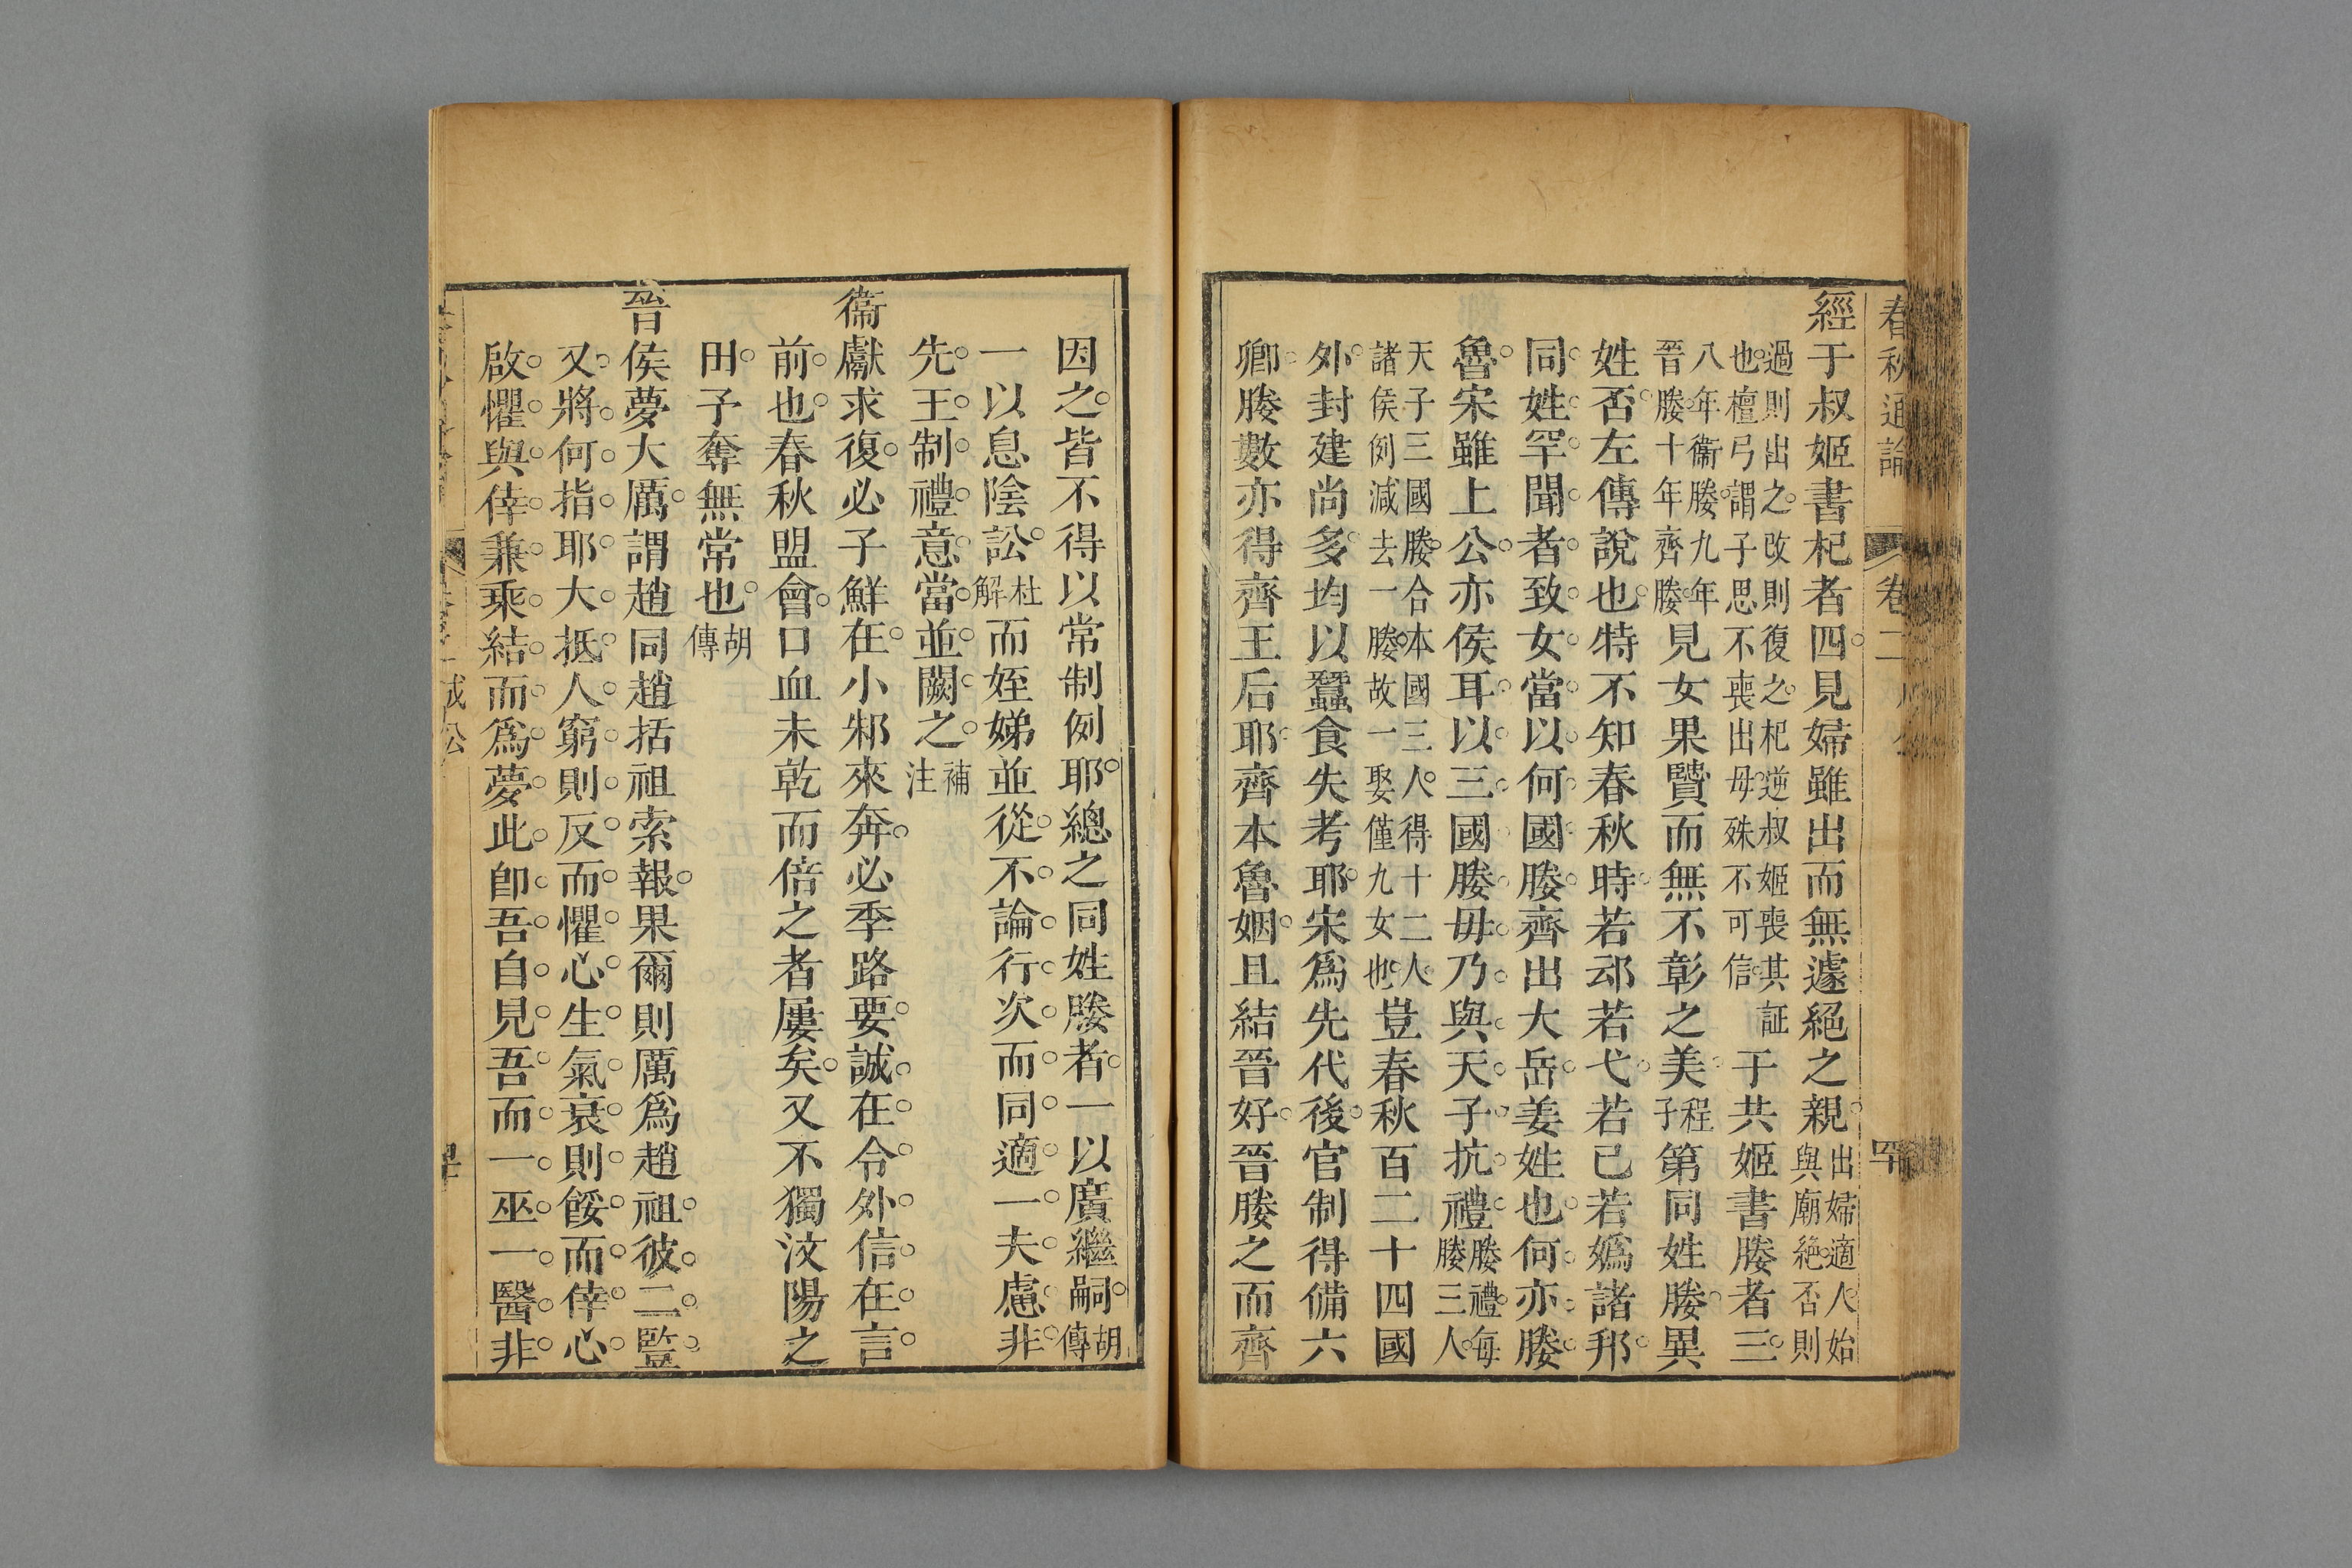 春秋通論 卷二
經于叔姬書杞者四見婦雖出而無遽絕之親出婦適人始與廟絕否則
過則出之改則復之杞逆叔姬喪其証也檀弓謂子思不喪出母殊不可信于共姬書媵者三
八年衞媵九年晉媵十年齊媵見女果賢而無不彰之美程子第同姓媵異
姓否左傳說也特不知春秋時若邧若弋若己若嬀諸邦
同姓罕聞者致女當以何國媵齊出大岳姜姓也何亦媵
魯宋雖上公亦侯耳以三國媵毋乃與天子抗禮媵禮每媵三人
天子三國媵合本國三人得十二人諸侯例減去一媵故一娶僅九女也豈春秋百二十四國
外封建尚多均以蠶食失考耶宋爲先代後官制得備六
卿媵數亦得齊王后耶齊本魯姻且結晉好晉媵之而齊
因之皆不得以常制例耶總之同姓媵者一以廣繼嗣胡傳
一以息陰訟杜解而姪娣並從不論行次而同適一夫慮非
先王制禮意當並闕之補注
衞獻求復必子鮮在小邾來奔必季路要誠在令外信在言
前也春秋盟會口血未乾而倍之者屢矣又不獨汶陽之
田子奪無常也胡傳
晉侯夢大厲謂趙同趙括祖索報果爾則厲爲趙祖彼二豎
又將何指耶大抵人窮則反而懼心生氣衰則餒而倖心
啟懼與倖兼乘結而爲夢此卽吾自見吾而一巫一醫非
成公